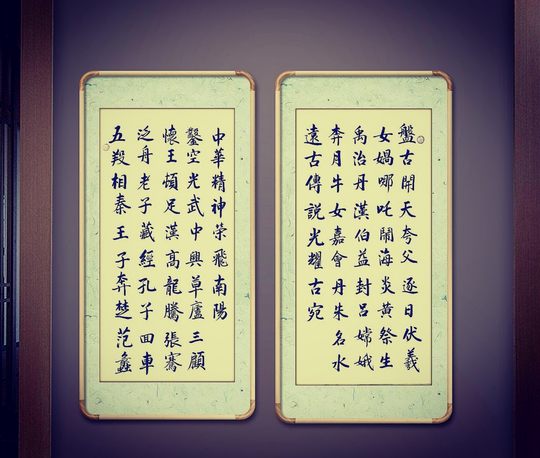 盤古開天夸父逐日伏羲
女媧哪吒鬧海炎黃祭生
禹治丹漢伯益封呂嫦娥
奔月牛女嘉會丹朱名水
遠古傳説光耀古宛
五羖相秦王子奔楚范蠡
泛舟老子藏經孔子回車
懷王頓足漢高龍騰張騫
鑿空光武中興草廬三顧
中華精神榮飛南陽